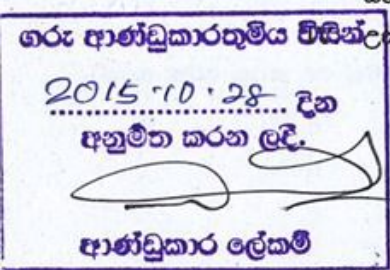 ගරු ආණ්ඩුකාරතුමිය විසින්
2015.10.28 දින
අනුමත කරන ලදී.
ආණ්ඩුකාර ලේකම්